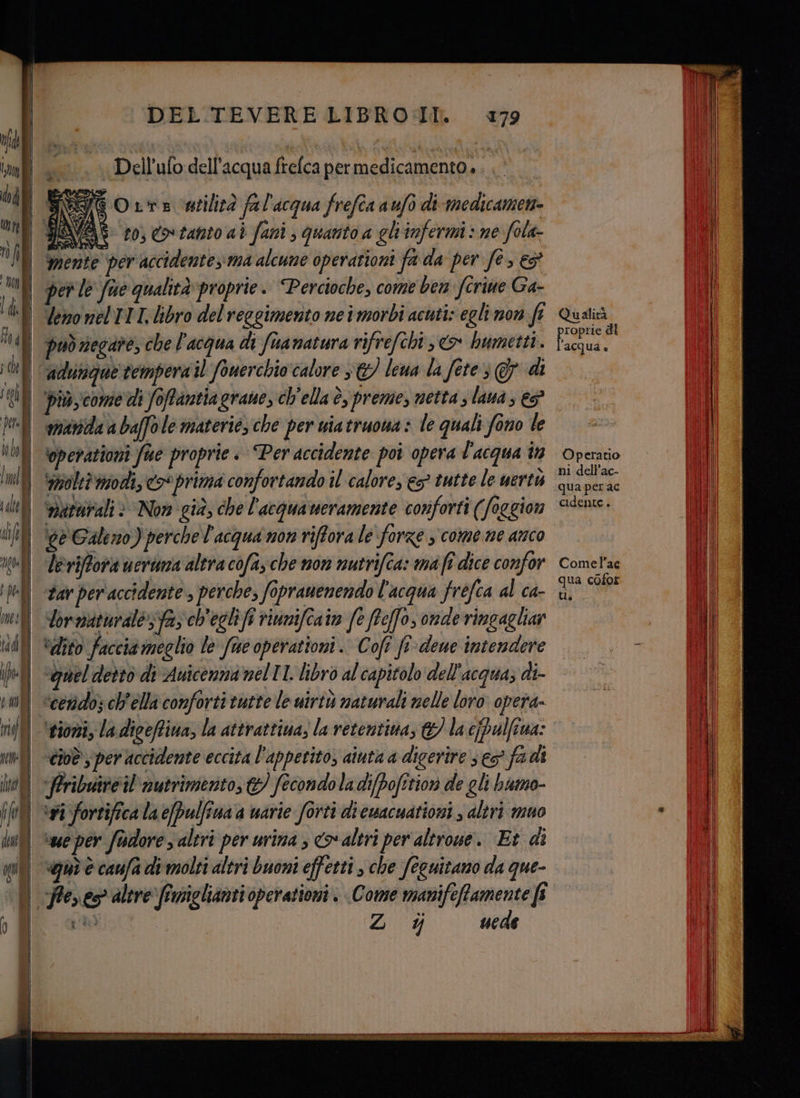 DEL TEVERE LIBRO II. 179
Dell'uſo dell'acqua freſca per medicamento.
MOLTE utilità fa l'acqua freſca a uſo di medicamen-
to, & tanto a i ſani, quanto a gli infermi: ne ſola-
mente per accidente, ma alcune operationi fa da per ſe, &
per le ſue qualità proprie. Percioche, come ben ſcriue Ga-
leno nel III. libro del reggimento ne i morbi acuti: egli non ſi
può negare, che l'acqua di ſua natura rifreſchi, & humetti.
adunque tempera il ſouerchio calore, & leua la ſete, & di
più, come di ſoſtantia graue, ch'ella è, preme, netta, laua, &
manda a baſſo le materie, che per uia truoua: le quali ſono le
operationi ſue proprie. Per accidente poi opera l'acqua in
molti modi, & prima confortando il calore, & tutte le uertù
naturali: Non già, che l'acqua ueramente conforti (ſoggion
ge Galeno) perche l'acqua non riſtora le forze, come ne anco
le riſtora ueruna altra coſa, che non nutriſca: ma ſi dice confor
tar per accidente, perche, ſoprauenendo l'acqua freſca al ca-
lor naturale, fa, ch'egli ſi riuniſca in ſe ſteſſo, onde ringagliar
dito faccia meglio le ſue operationi. Coſi ſi deue intendere
quel detto di Auicenna nel II. libro al capitolo dell'acqua, di-
cendo; ch'ella conforti tutte le uirtù naturali nelle loro opera-
tioni, la digeſtiua, la attrattiua, la retentiua, & la eſpulſiua:
cioè, per accidente eccita l'appetito, aiuta a digerire, & fa di
ſtribuire il nutrimento, & ſecondo la diſpoſition de gli humo-
ri fortifica la eſpulſiua a uarie ſorti di euacuationi, altri muo
ue per ſudore, altri per urina, & altri per altroue. Et di
quì è cauſa di molti altri buoni effetti, che ſeguitano da que-
ſte, & altre ſimiglianti operationi. Come manifeſtamente ſi
Z ij uede
Qualità
proprie dl
l'acqua.
Operatio
ni dell'ac-
qua per ac
cidente.
Come l'ac
qua cōfor
ti.